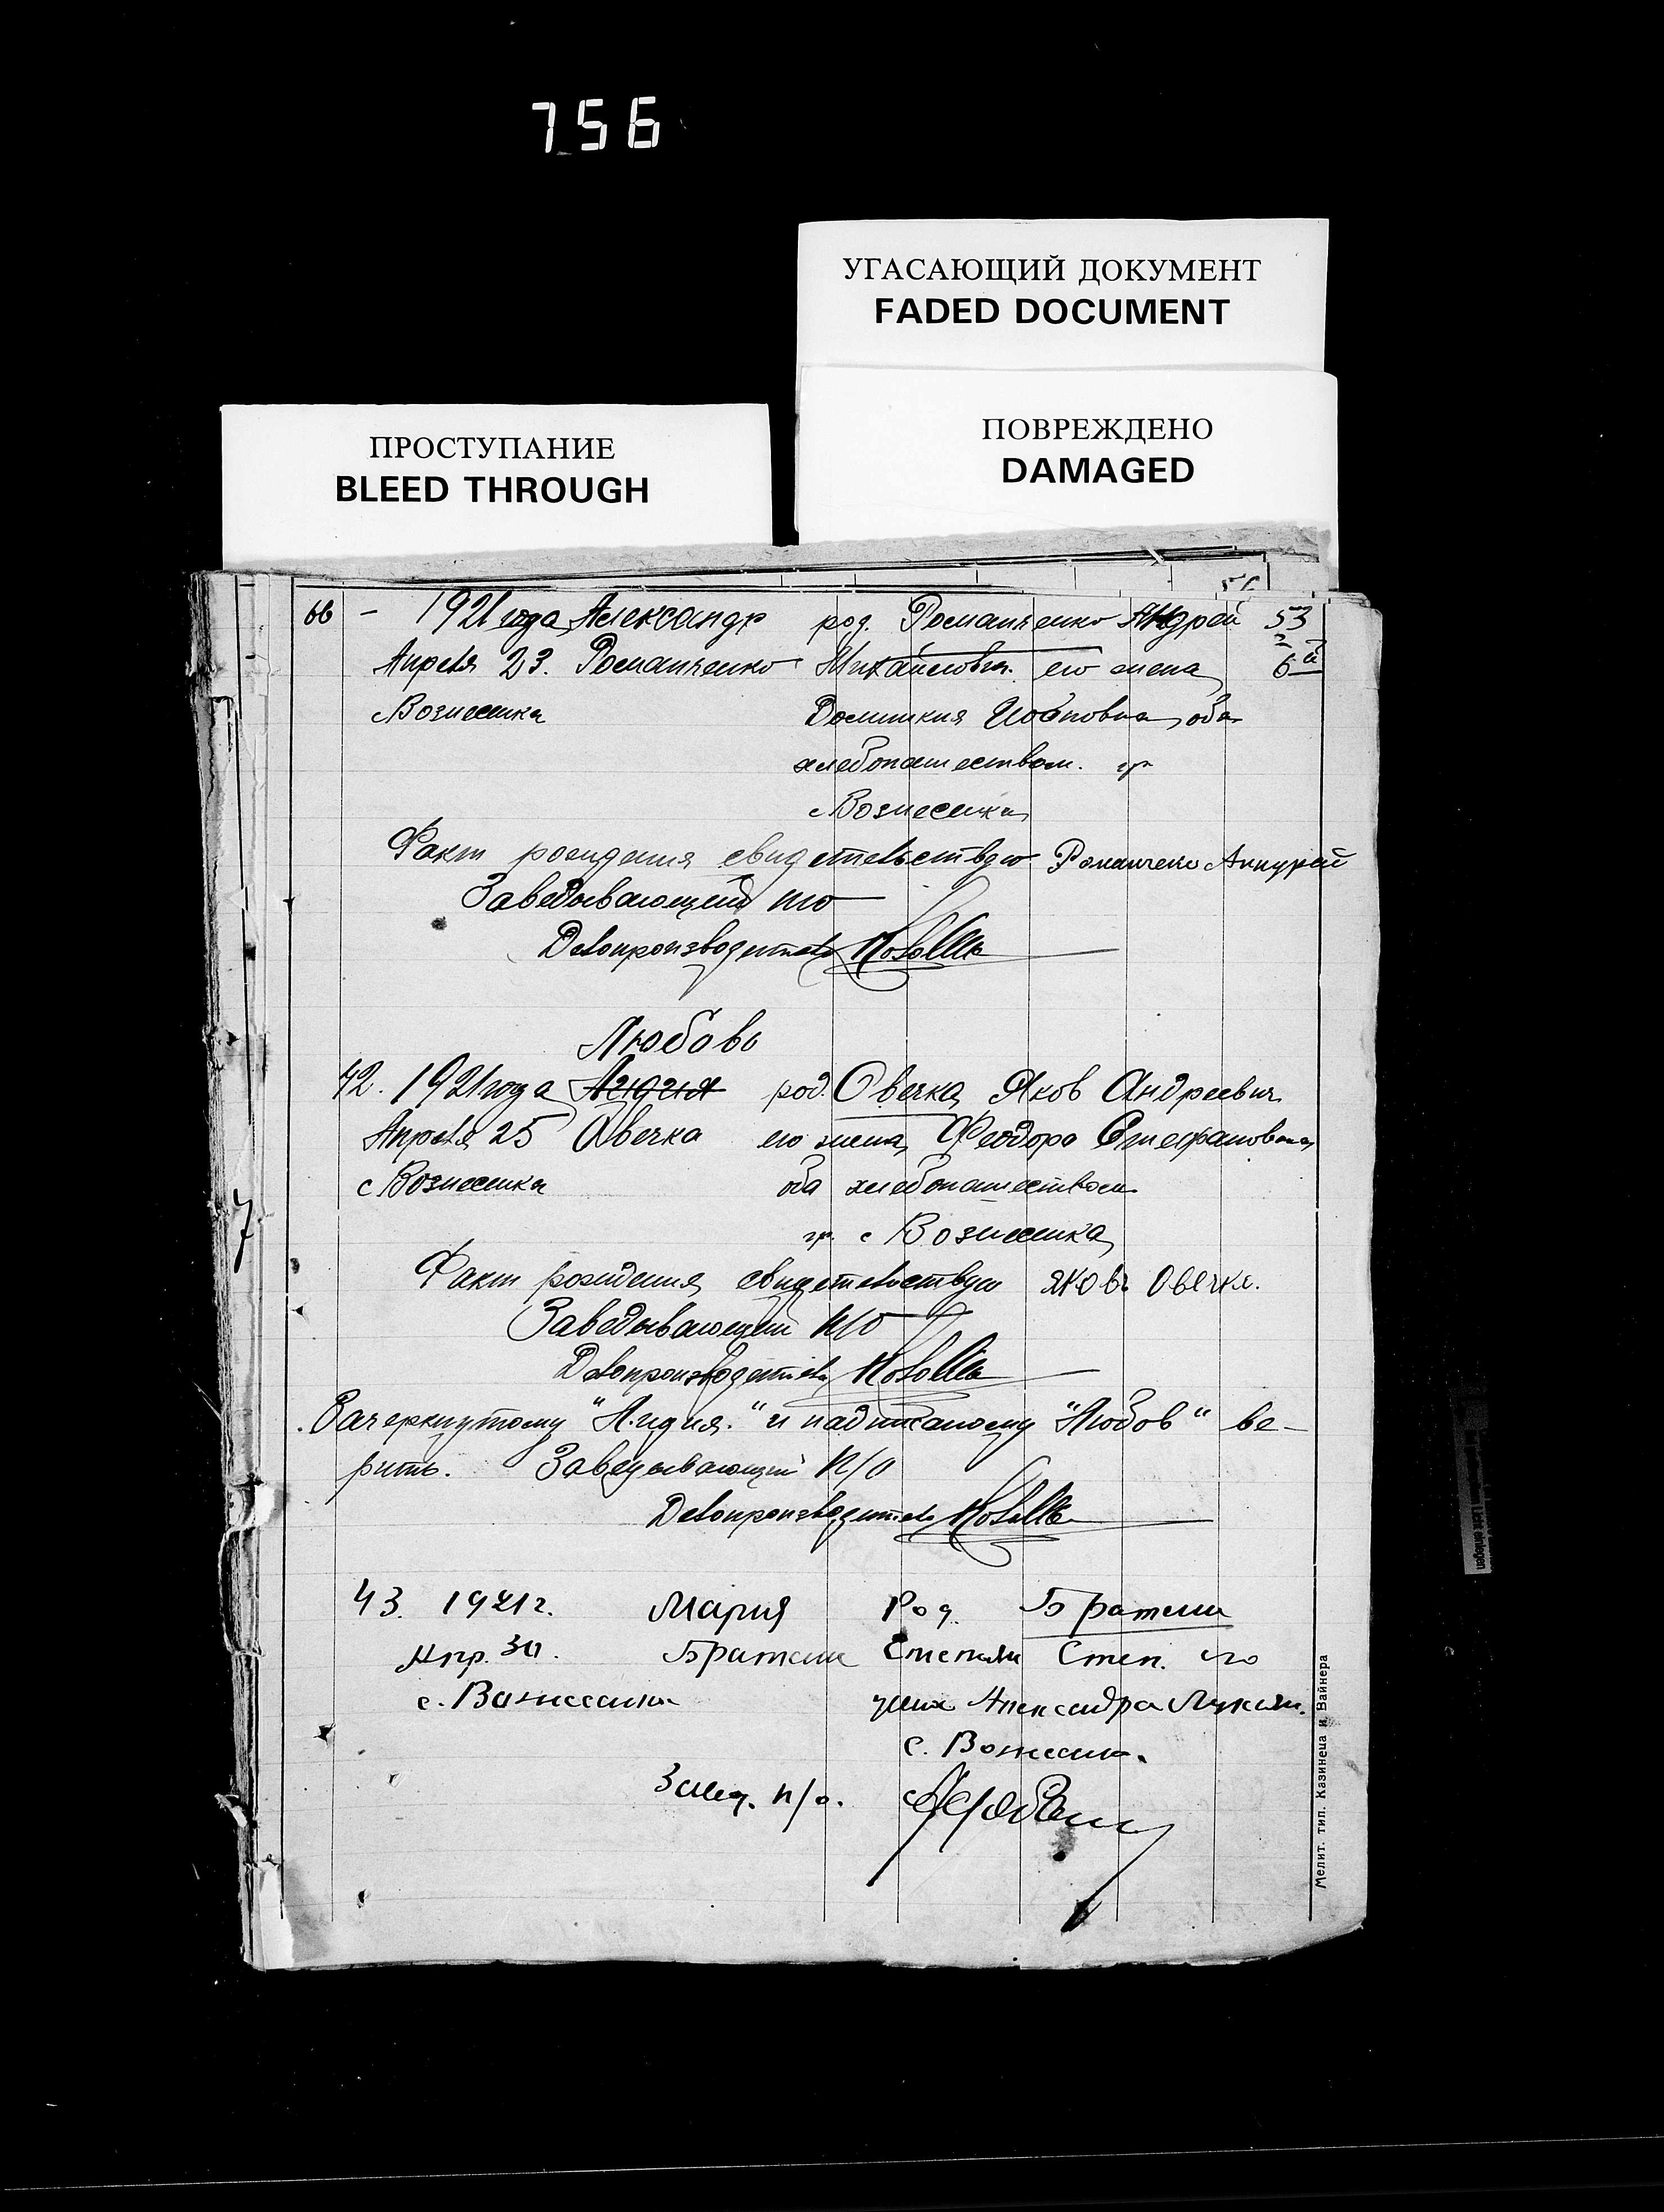 756
УГАСАЮЩИЙ ДОКУМЕНТ
FADED DOCUMENT
ПОВРЕЖДЕНО
DAMAGED
ПРОСТУПАНИЕ
BLEED THROUGH
66 - 1921 года Александр род. Романченко Андрей 53
Апреля 23. Романченко Михайлович. его жена 6й
с Вознесенка Домникия Иовловна, оба
хлебопашеством. гр
с Вознесенка
Факт рождения свидетельствую Романченко
Заведывающий п/о
Делопроизводитель
Любовь
42. 1921 года Лидия род. Овечка, Яков Андреевич
Апреля 25 Овечка его жена, Феодора Стефановна
с Вознесенка оба хлебопашеством
гр. с Вознесенка
Факт рождения свидетельствую Яковъ Овечка.
Заведывающий п/о
Делопроизводитель
Зачеркнутому "Лидия." и надписаному "Любов" ве-
рить. Заведывающий п/о
Делопроизводитель
43. 1921 г. Мария Род. Братени
Апр. 30. Братени Степан Степ. его
с. Вознесенка жена Александра Лукьян.
с. Вознесенк.
Завед. п/о.
7
Мелит. тип. Казинеца и Вайнера